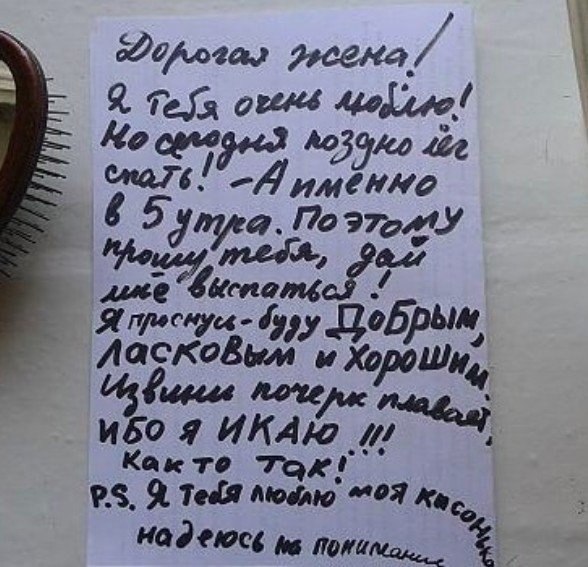 Дорогая жена!
Я тебя очень люблю!
Но сегодня поздно лёг
спать! - А именно
в 5 утра. Поэтому
прошу тебя, дай
мне выспаться!
Я проснусь - буду Добрым,
ласковым и хорошим.
Извини почерк плавает,
ибо я ИКАЮ!!!
Как то так!
P.S. Я тебя люблю моя кисонька
надеюсь на понимание